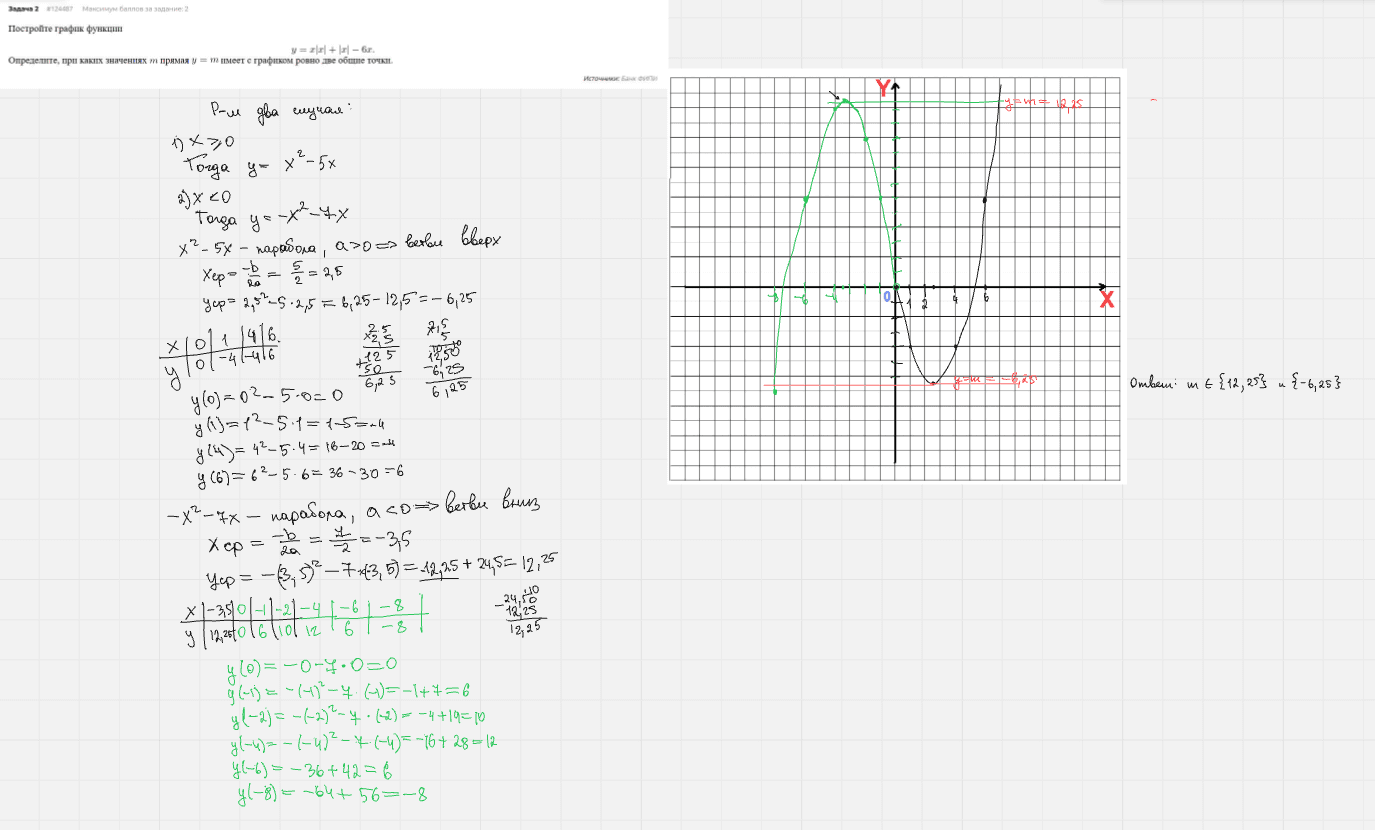 Задача 2 #124487 Максимум баллов за задание: 2
Постройте график функции
y = x|x| + |x| − 6x.
Определите, при каких значениях m прямая y = m имеет с графиком ровно две общие точки.
Источники: Банк ФИПИ
Р-м два случая:
1) x ⩾ 0
Тогда y = x² − 5x
2) x < 0
Тогда y = −x² − 7x
x² − 5x – парабола, a>0 => ветви вверх
xср = −b/2a = 5/2 = 2,5
yср = 2,5² − 5·2,5 = 6,25 − 12,5 = −6,25
x | 0 | 1 | 4 | 6
y | 0 | −4 | −4 | 6
2,5
×2,5
125
+50
6,25
2,5
5
12,50
−6,25
6,25
y(0) = 0² − 5·0 = 0
y(1) = 1² − 5·1 = 1−5 = −4
y(4) = 4² − 5·4 = 16−20 = −4
y(6) = 6² − 5·6 = 36−30 = 6
−x² − 7x – парабола, a<0 => ветви вниз
xср = −b/2a = 7/−2 = −3,5
yср = −(−3,5)² − 7·(−3,5) = −12,25 + 24,5 = 12,25
x | −3,5 | 0 | −1 | −2 | −4 | −6 | −8
y | 12,25 | 0 | 6 | 10 | 12 | 6 | −8
10
24,50
−12,25
12,25
y(0) = −0−7·0 = 0
y(−1) = −(−1)² − 7·(−1) = −1+7 = 6
y(−2) = −(−2)² − 7·(−2) = −4+14 = 10
y(−4) = −(−4)² − 7·(−4) = −16 + 28 = 12
y(−6) = −36 + 42 = 6
y(−8) = −64 + 56 = −8
Y
y=m = 12,25
−8 −6 −4 0 1 2 4 6
X
y=m = −6,25
Ответ: m ∈ {12,25} и {−6,25}